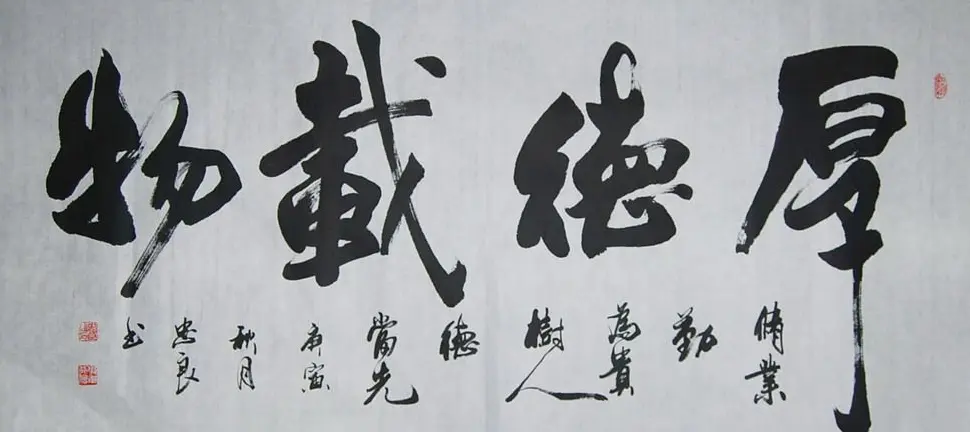 厚德載物
脩業
勤
為貴
樹人
德
當先
庚寅
秋月
忠良
书